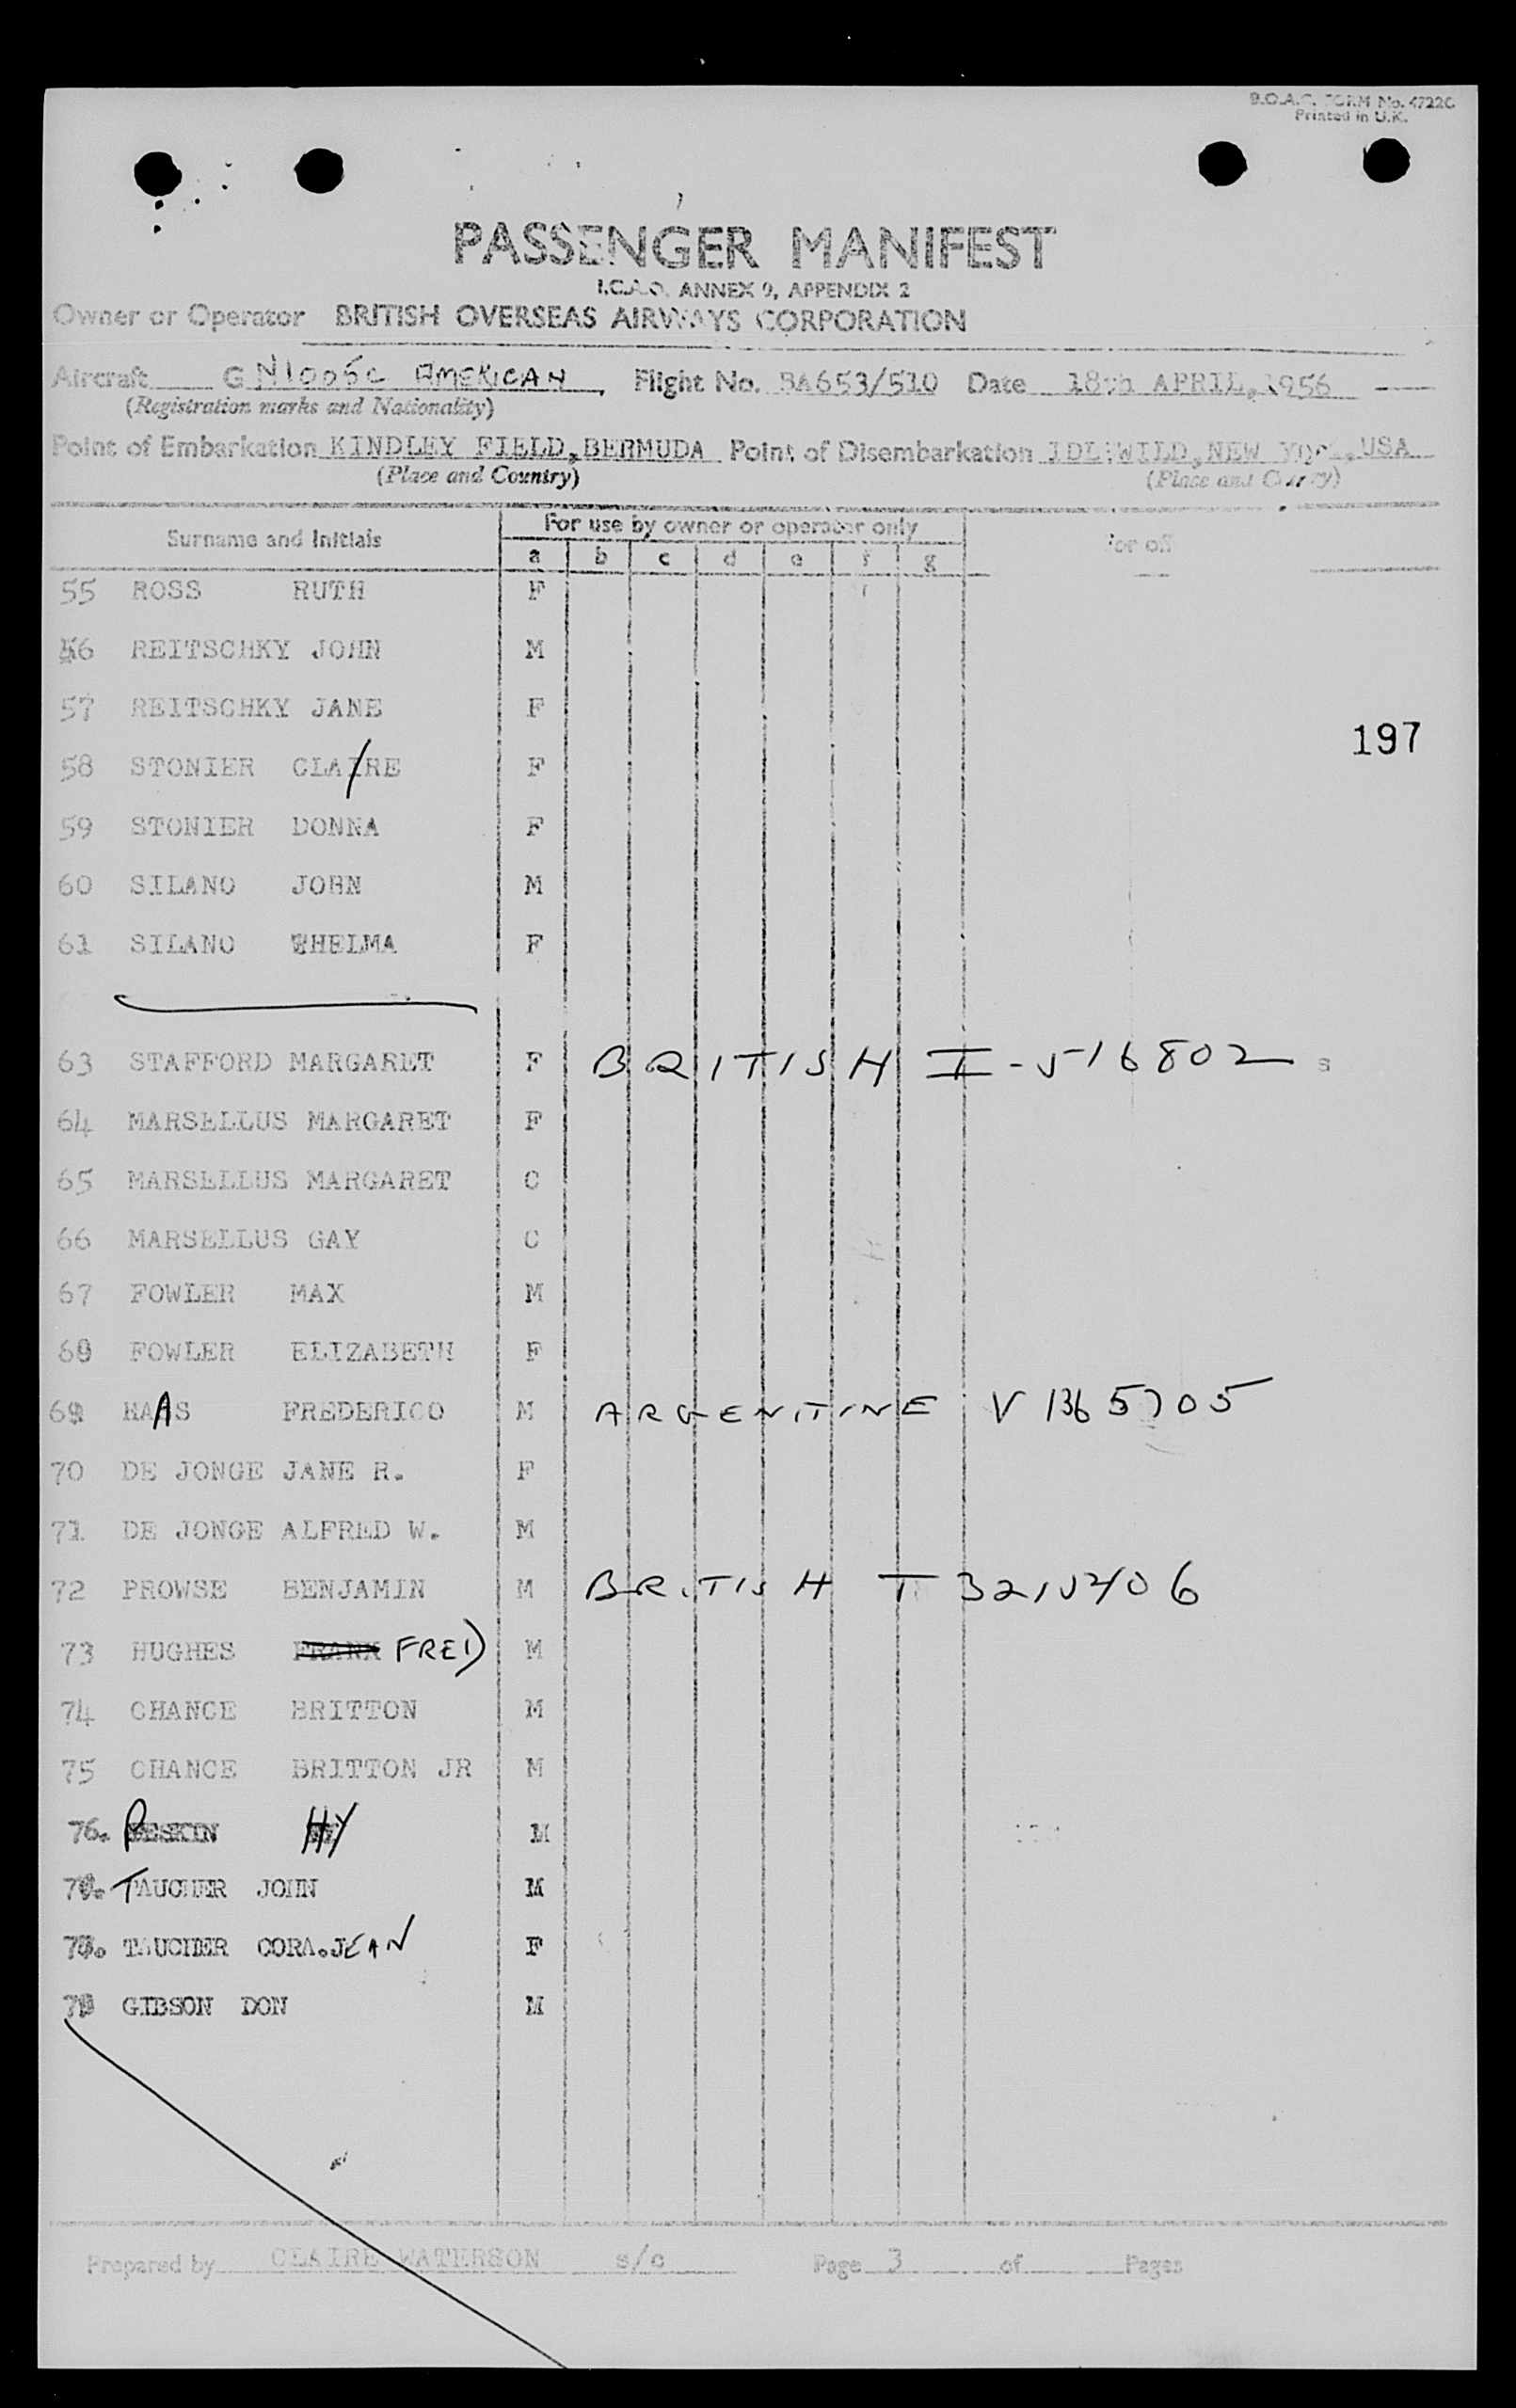 B.O.A.C. FORM No. 4722C
Printed in U.K.
PASSENGER MANIFEST
I.C.A.O. ANNEX 9, APPENDIX 2
Owner or Operator BRITISH OVERSEAS AIRWAYS CORPORATION
Aircraft G N1006C AMERICAN Flight No. BA653/510 Date 18th APRIL, 1956
(Registration marks and Nationality)
Point of Embarkation KINDLEY FIELD, BERMUDA Point of Disembarkation IDLEWILD, NEW YORK, USA
(Place and Country) (Place and Country)
Surname and Initials For use by owner or operator only
a b c d e f g
55 ROSS RUTH F
56 REITSCHKY JOHN M
57 REITSCHKY JANE F
197
58 STONIER CLA/RE F
59 STONIER DONNA F
60 SILANO JOHN M
61 SILANO THELMA F
63 STAFFORD MARGARET F BRITISH I-516802
64 MARSELLUS MARGARET F
65 MARSELLUS MARGARET C
66 MARSELLUS GAY C
67 FOWLER MAX M
68 FOWLER ELIZABETH F
69 HAAS FREDERICO M ARGENTINE V 1365705
70 DE JONGE JANE R. F
71 DE JONGE ALFRED W. M
72 PROWSE BENJAMIN M BRITISH
73 HUGHES FRANK FRED M
74 CHANCE BRITTON M
75 CHANCE BRITTON JR M
76. PESKIN HY M
TAUCHER JOHN M
TAUCHER CORA.JEAN F
GIBSON DON M
Prepared by CLAIRE WATERSON s/c Page 3 of Pages